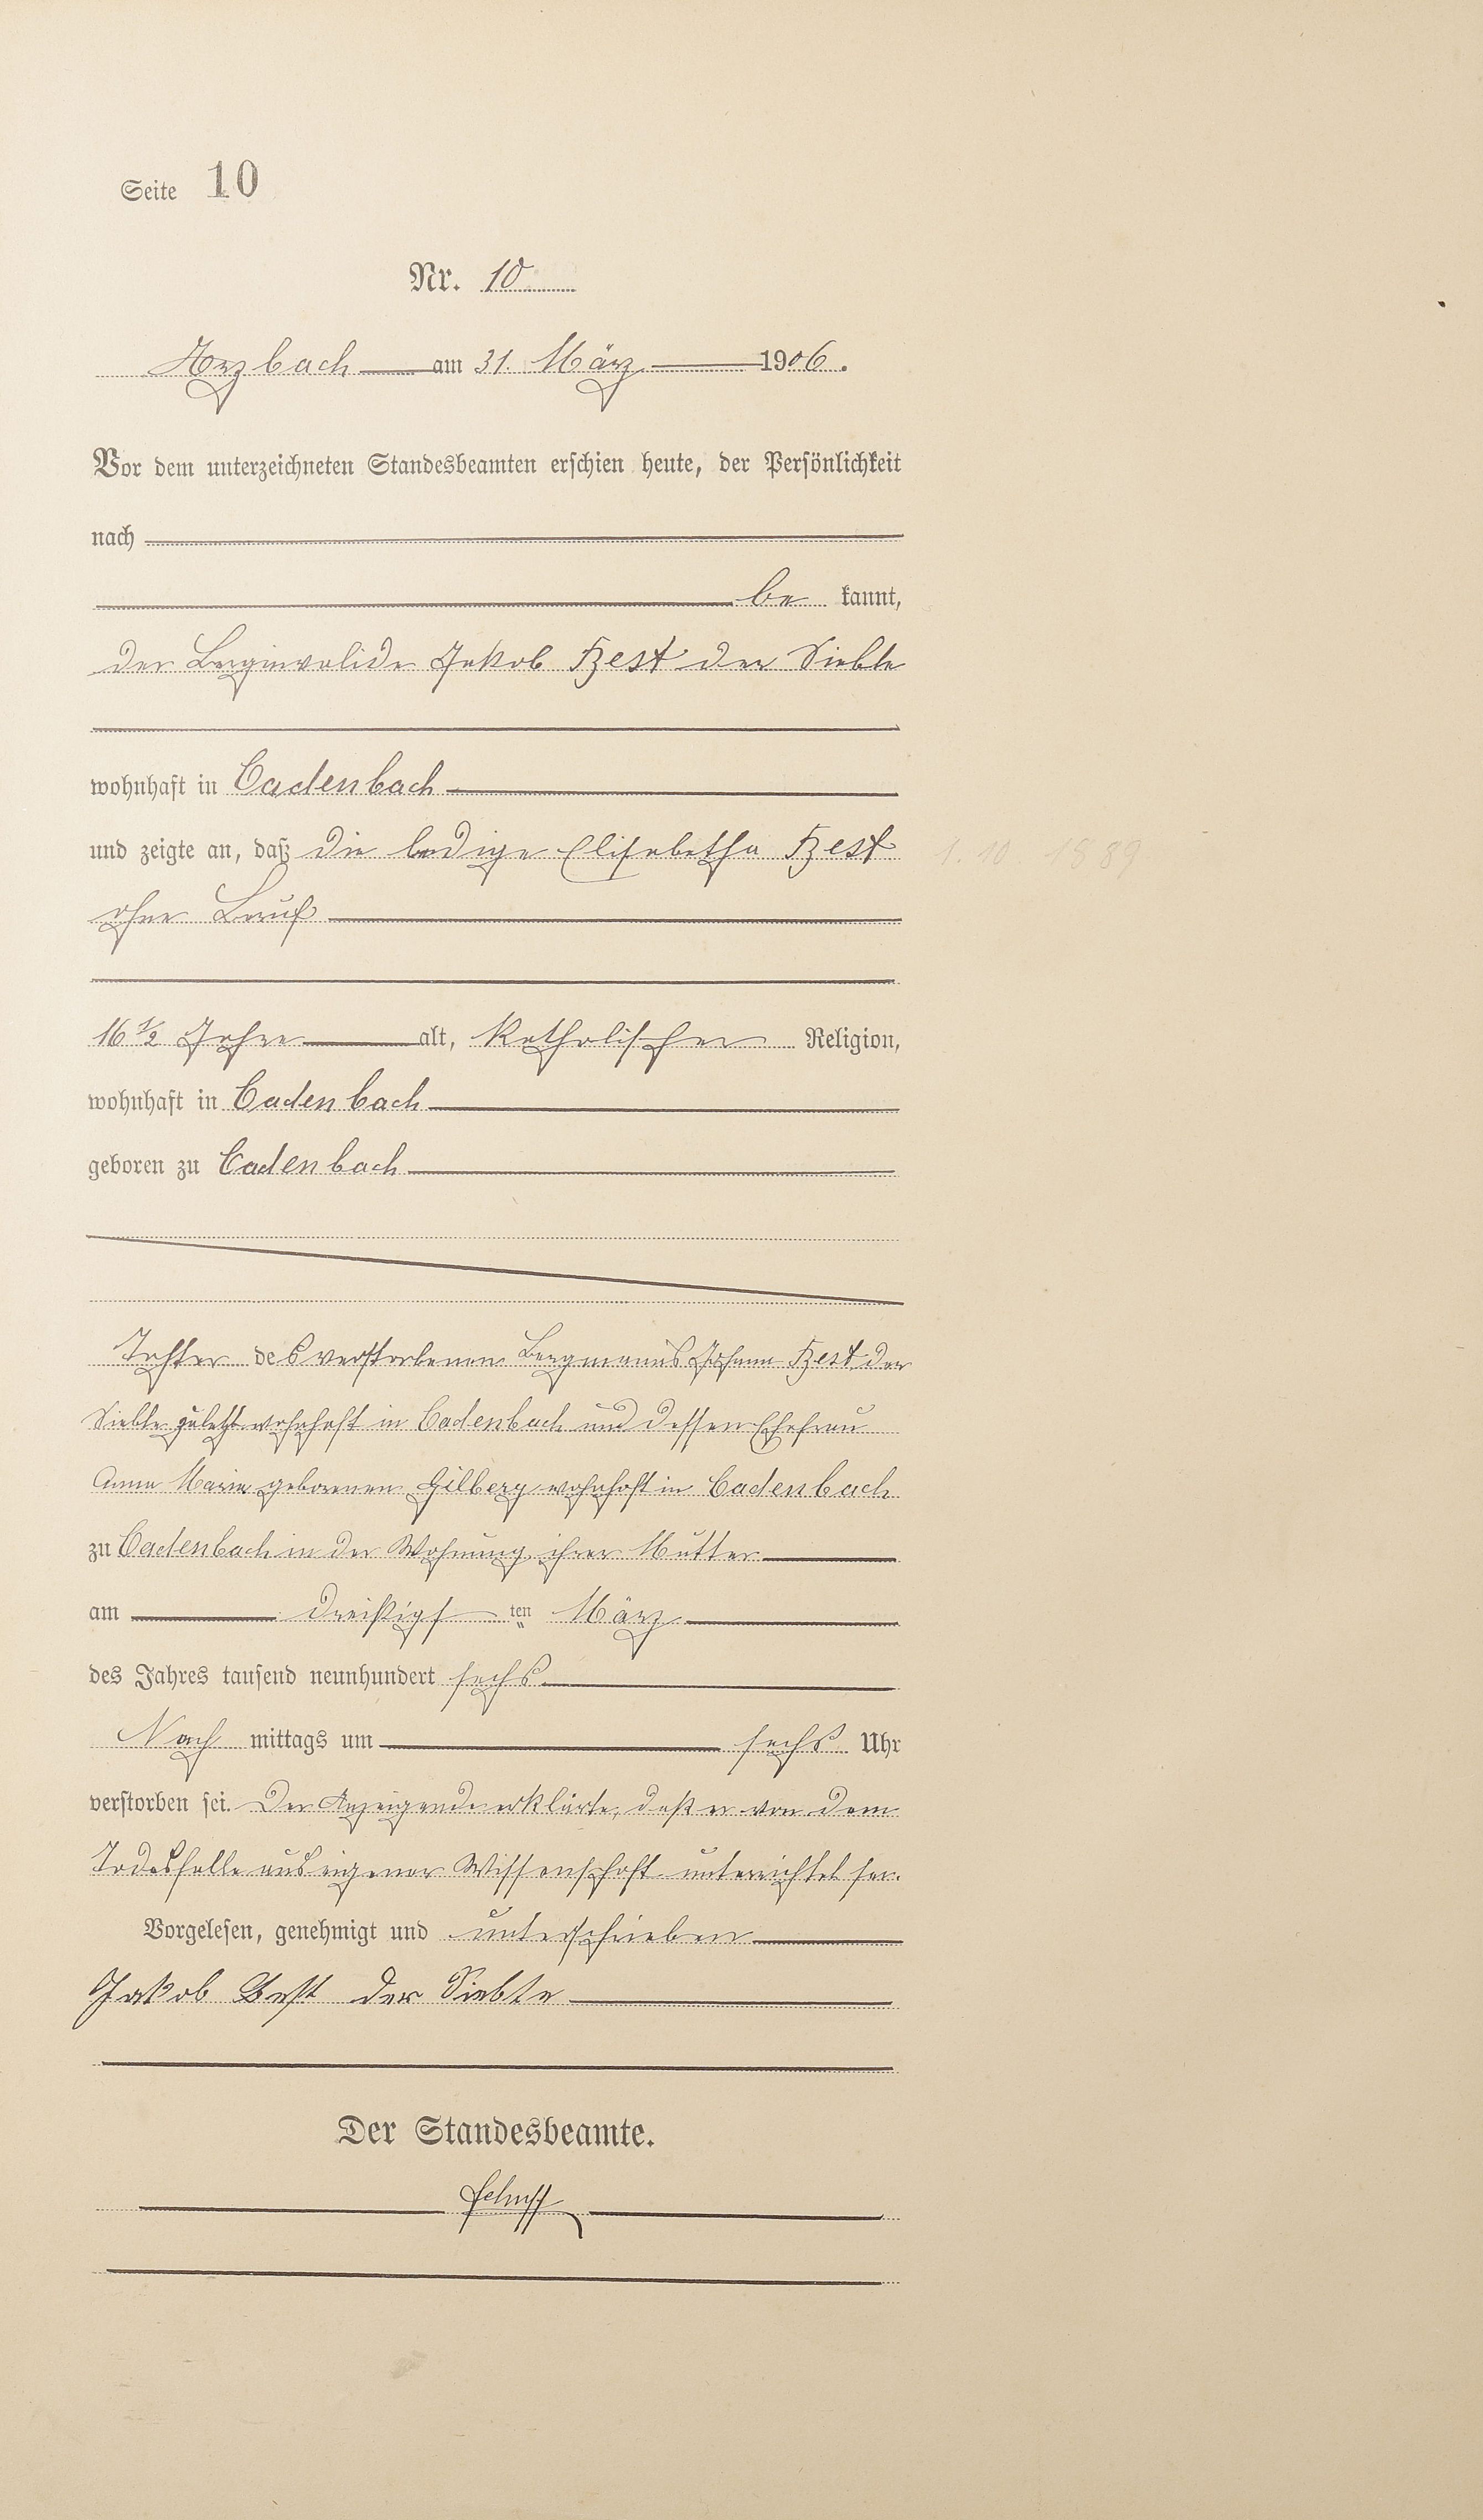 Seite 10
Nr. 10
Arzbach am 31. März 1906.
Vor dem unterzeichneten Standesbeamten erschien heute, der Persönlichkeit
nach
be kannt,
der Berginvalide Jakob Best der Siebte
wohnhaft in Cadenbach
und zeigte an, daß die ledige Elisabetha Best
1. 10. 1889
ohne Beruf
16 1/2 Jahre alt, katholischer Religion,
wohnhaft in Cadenbach
geboren zu Cadenbach
Tochter des verstorbenen Bergmanns Johann Best der
Siebte zuletzt wohnhaft in Cadenbach und dessen Ehefrau
Anna Maria geborenen Gilberg wohnhaft in Cadenbach
zu Cadenbach in der Wohnung ihrer Mutter
am dreißigsten März
des Jahres tausend neunhundert sechs
Nach mittags um sechs Uhr
verstorben sei. Der Anzeigende erklärte, daß er von dem
Todesfalle aus eigener Wissenschaft unterrichtet sei.
Vorgelesen, genehmigt und unterschrieben
Jakob Best der Siebte
Der Standesbeamte.